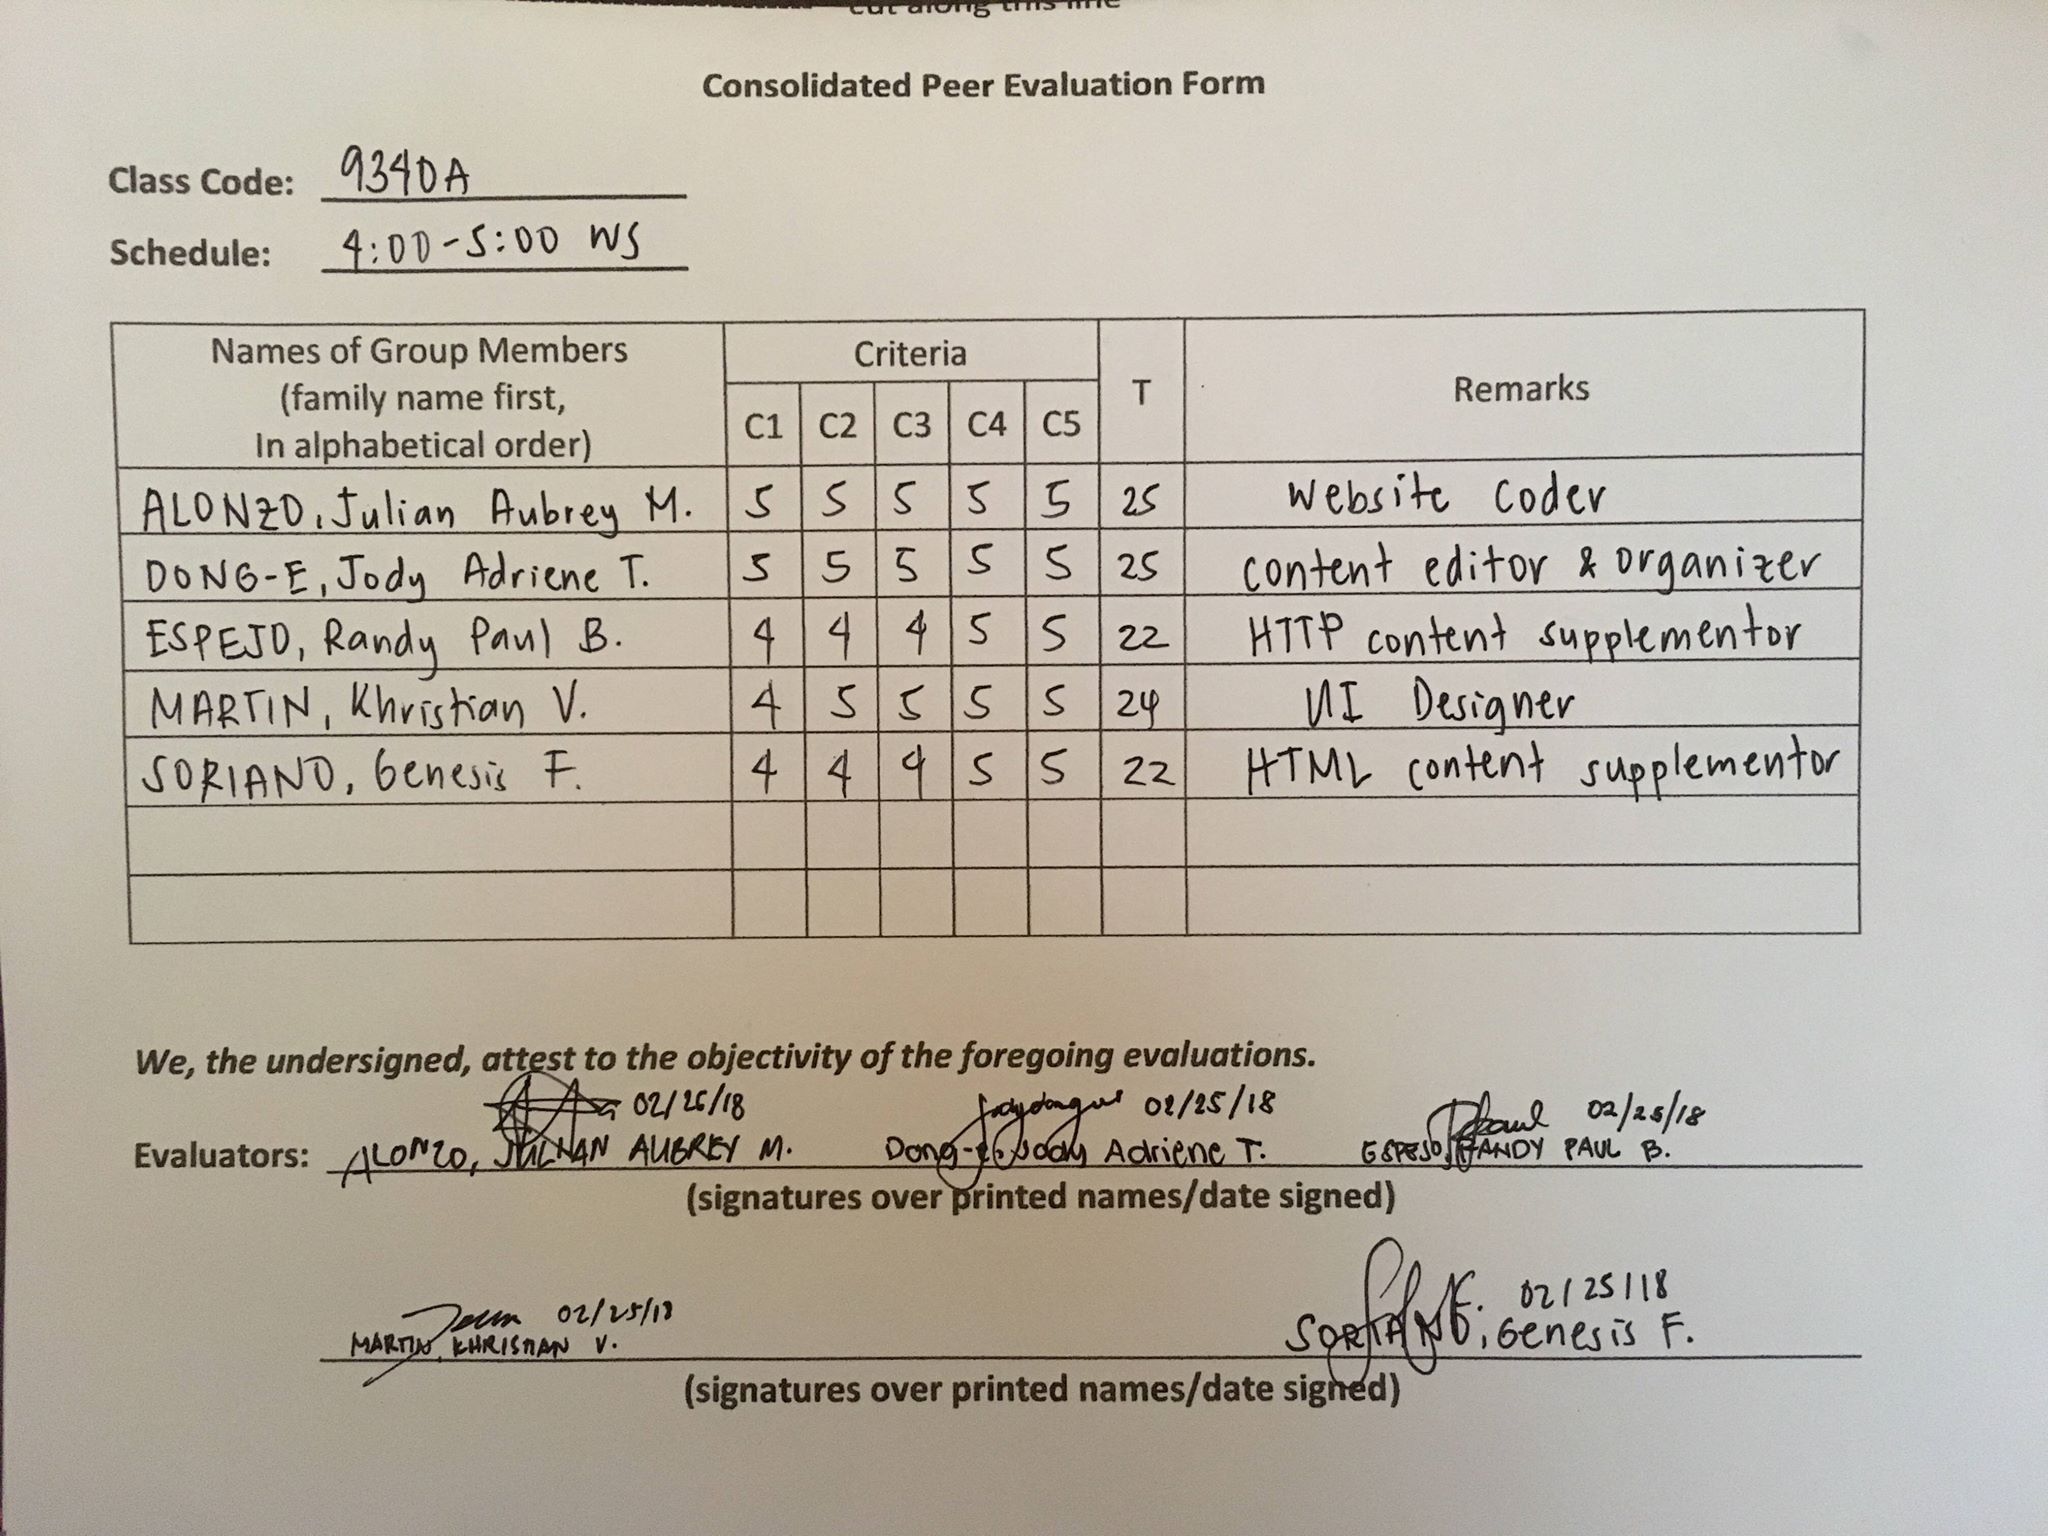 cut along this line
Consolidated Peer Evaluation Form
Class Code: 9340A
Schedule: 4:00-5:00 WS
Names of Group Members (family name first, In alphabetical order) Criteria T Remarks
C1 C2 C3 C4 C5
ALONZO, Julian Aubrey M. 5 5 5 5 5 25 Website Coder
DONG-E, Jody Adriene T. 5 5 5 5 5 25 content editor & organizer
ESPEJO, Randy Paul B. 4 4 4 5 5 22 HTTP content supplementor
MARTIN, Khristian V. 4 5 5 5 5 24 UI Designer
SORIANO, Genesis F. 4 4 4 5 5 22 HTML content supplementor
We, the undersigned, attest to the objectivity of the foregoing evaluations.
02/25/18 02/25/18 02/25/18
Evaluators: ALONZO, JULIAN AUBREY M. Dong-e, Jody Adriene T. ESPEJO, RANDY PAUL B.
(signatures over printed names/date signed)
02/25/18 02/25/18
MARTIN, KHRISTIAN V. SORIANO, Genesis F.
(signatures over printed names/date signed)